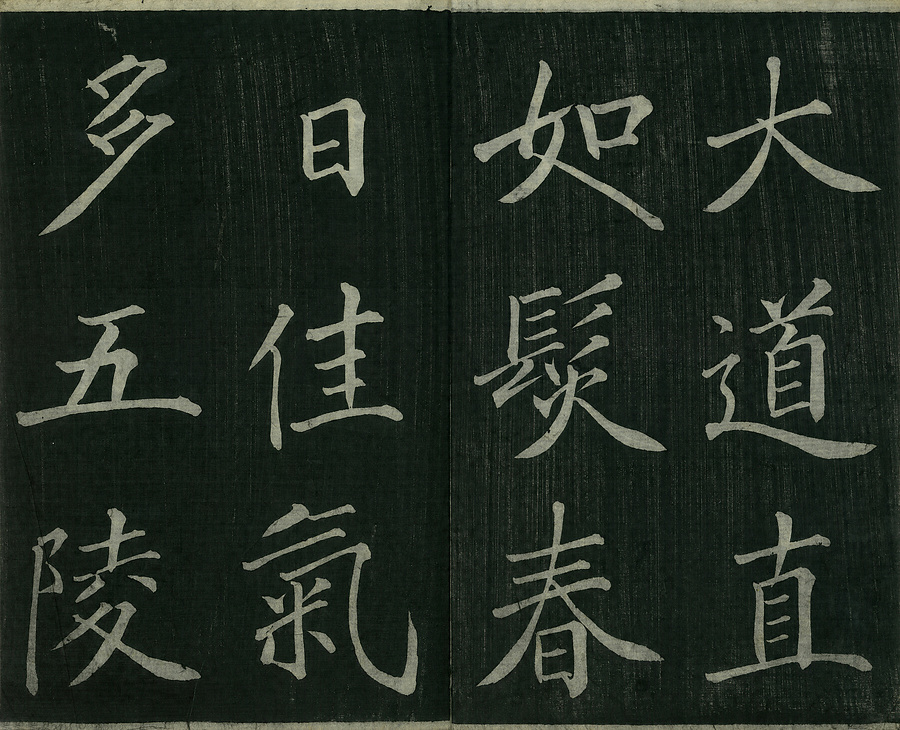 大道直
如髮春
日佳氣
多五陵